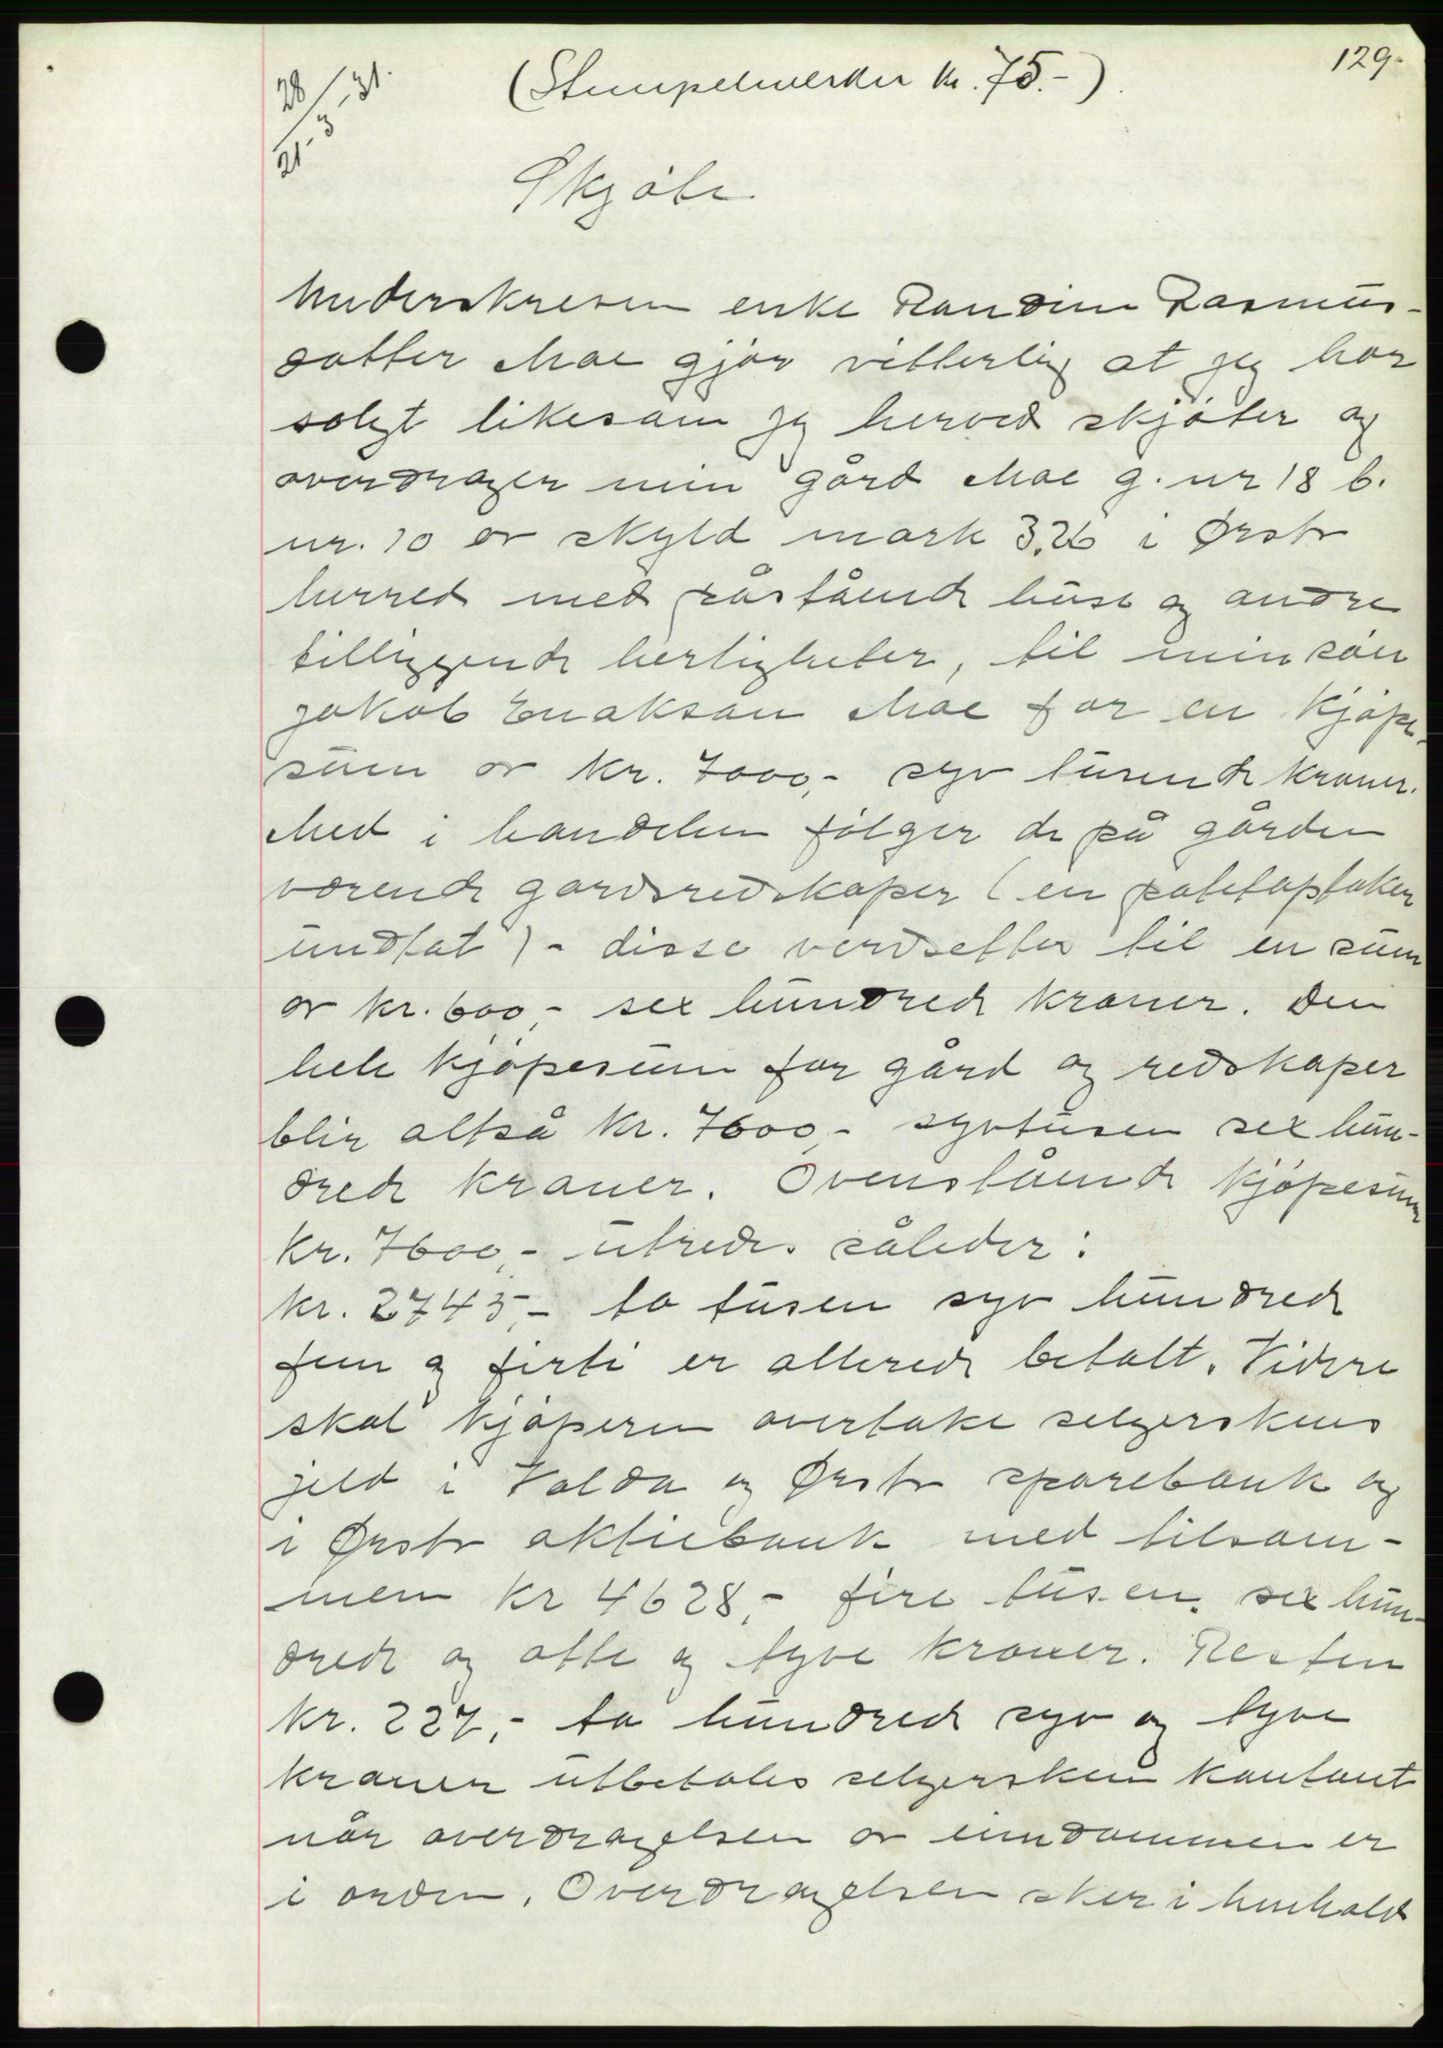 129.
28/21-3-31.
(Stempelmerker kr. 75.-)
Skjöte
Underskreven enke Randine Rasmus-
datter Moe gjör vitterlig at jeg har
solgt likesom jeg herved skjöter og
overdrager min gård Moe g. nr 18 b.
nr. 10 av skyld mark 3.26 i Ørsta
herred med påstående huse og andre
tilliggende herligheter, til min sön
Jakob Knutsön Moe for en kjöpe-
sum av kr. 7000,- syv tusende kroner.
Med i handelen fölger de på gården
værende gardsredskaper (en potetoptaker
undtat) - disse verdsettes til en sum
av kr. 600,- sex hundrede kroner. Den
hele kjöpesum for gård og redskaper
blir altså kr. 7600,- syvtusen sex hun-
drede kroner. Ovenstående kjöpesum
kr. 7600,- utredes således:
kr. 2745,- to tusen syv hundrede
fem og firti er allerede betalt. Videre
skal kjöperen overtake selgerskens
jeld i Volda og Ørsta sparebank og
i Ørsta aktiebank med tilsam-
men kr 4628,- fire tusen sex hun-
drede og otte og tyve kroner. Resten
kr. 227,- to hundrede syv og tyve
kroner utbetales selgersken kontant
når overdragelsen av eiendommen er
i orden. Overdragelsen sker i henhold